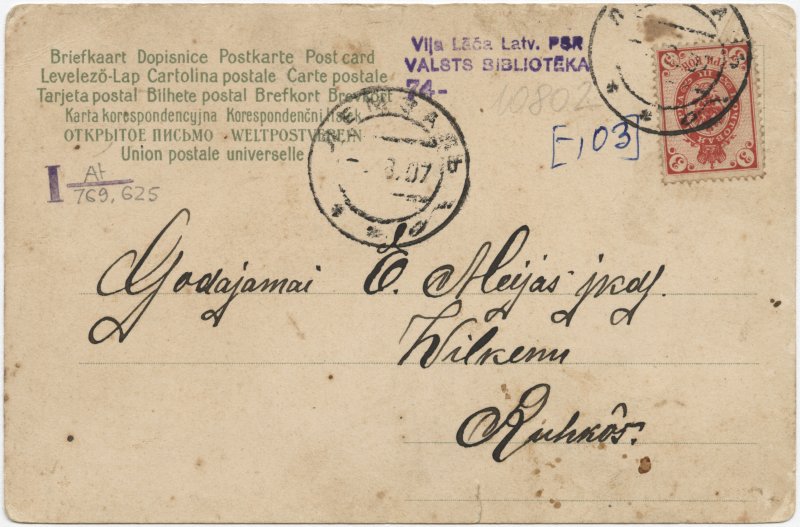 Briefkaart Dopisnice Postkarte Post card
Levelező-Lap Cartolina postale Carte postale
Tarjeta postal Bilhete postal Brefkort Brevkort
Karta korespondencyjna Korespondenčni listek
ОТКРЫТОЕ ПИСЬМО WELTPOSTVEREIN
Union postale universelle
Viļa Lāča Latv. PSR
VALSTS BIBLIOTĒKA
74-
10802
[-,03]
I At
769,625
ЛЕМЗАЛЬ
.07
3 3
Godajamai E. Meijas jkdz.
Wilkenu
Ruhkôs.